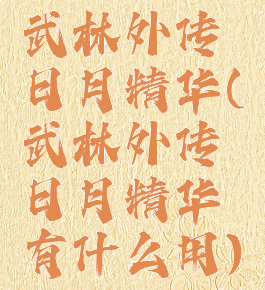 武林外传
日月精华(
武林外传
日月精华
有什么用)